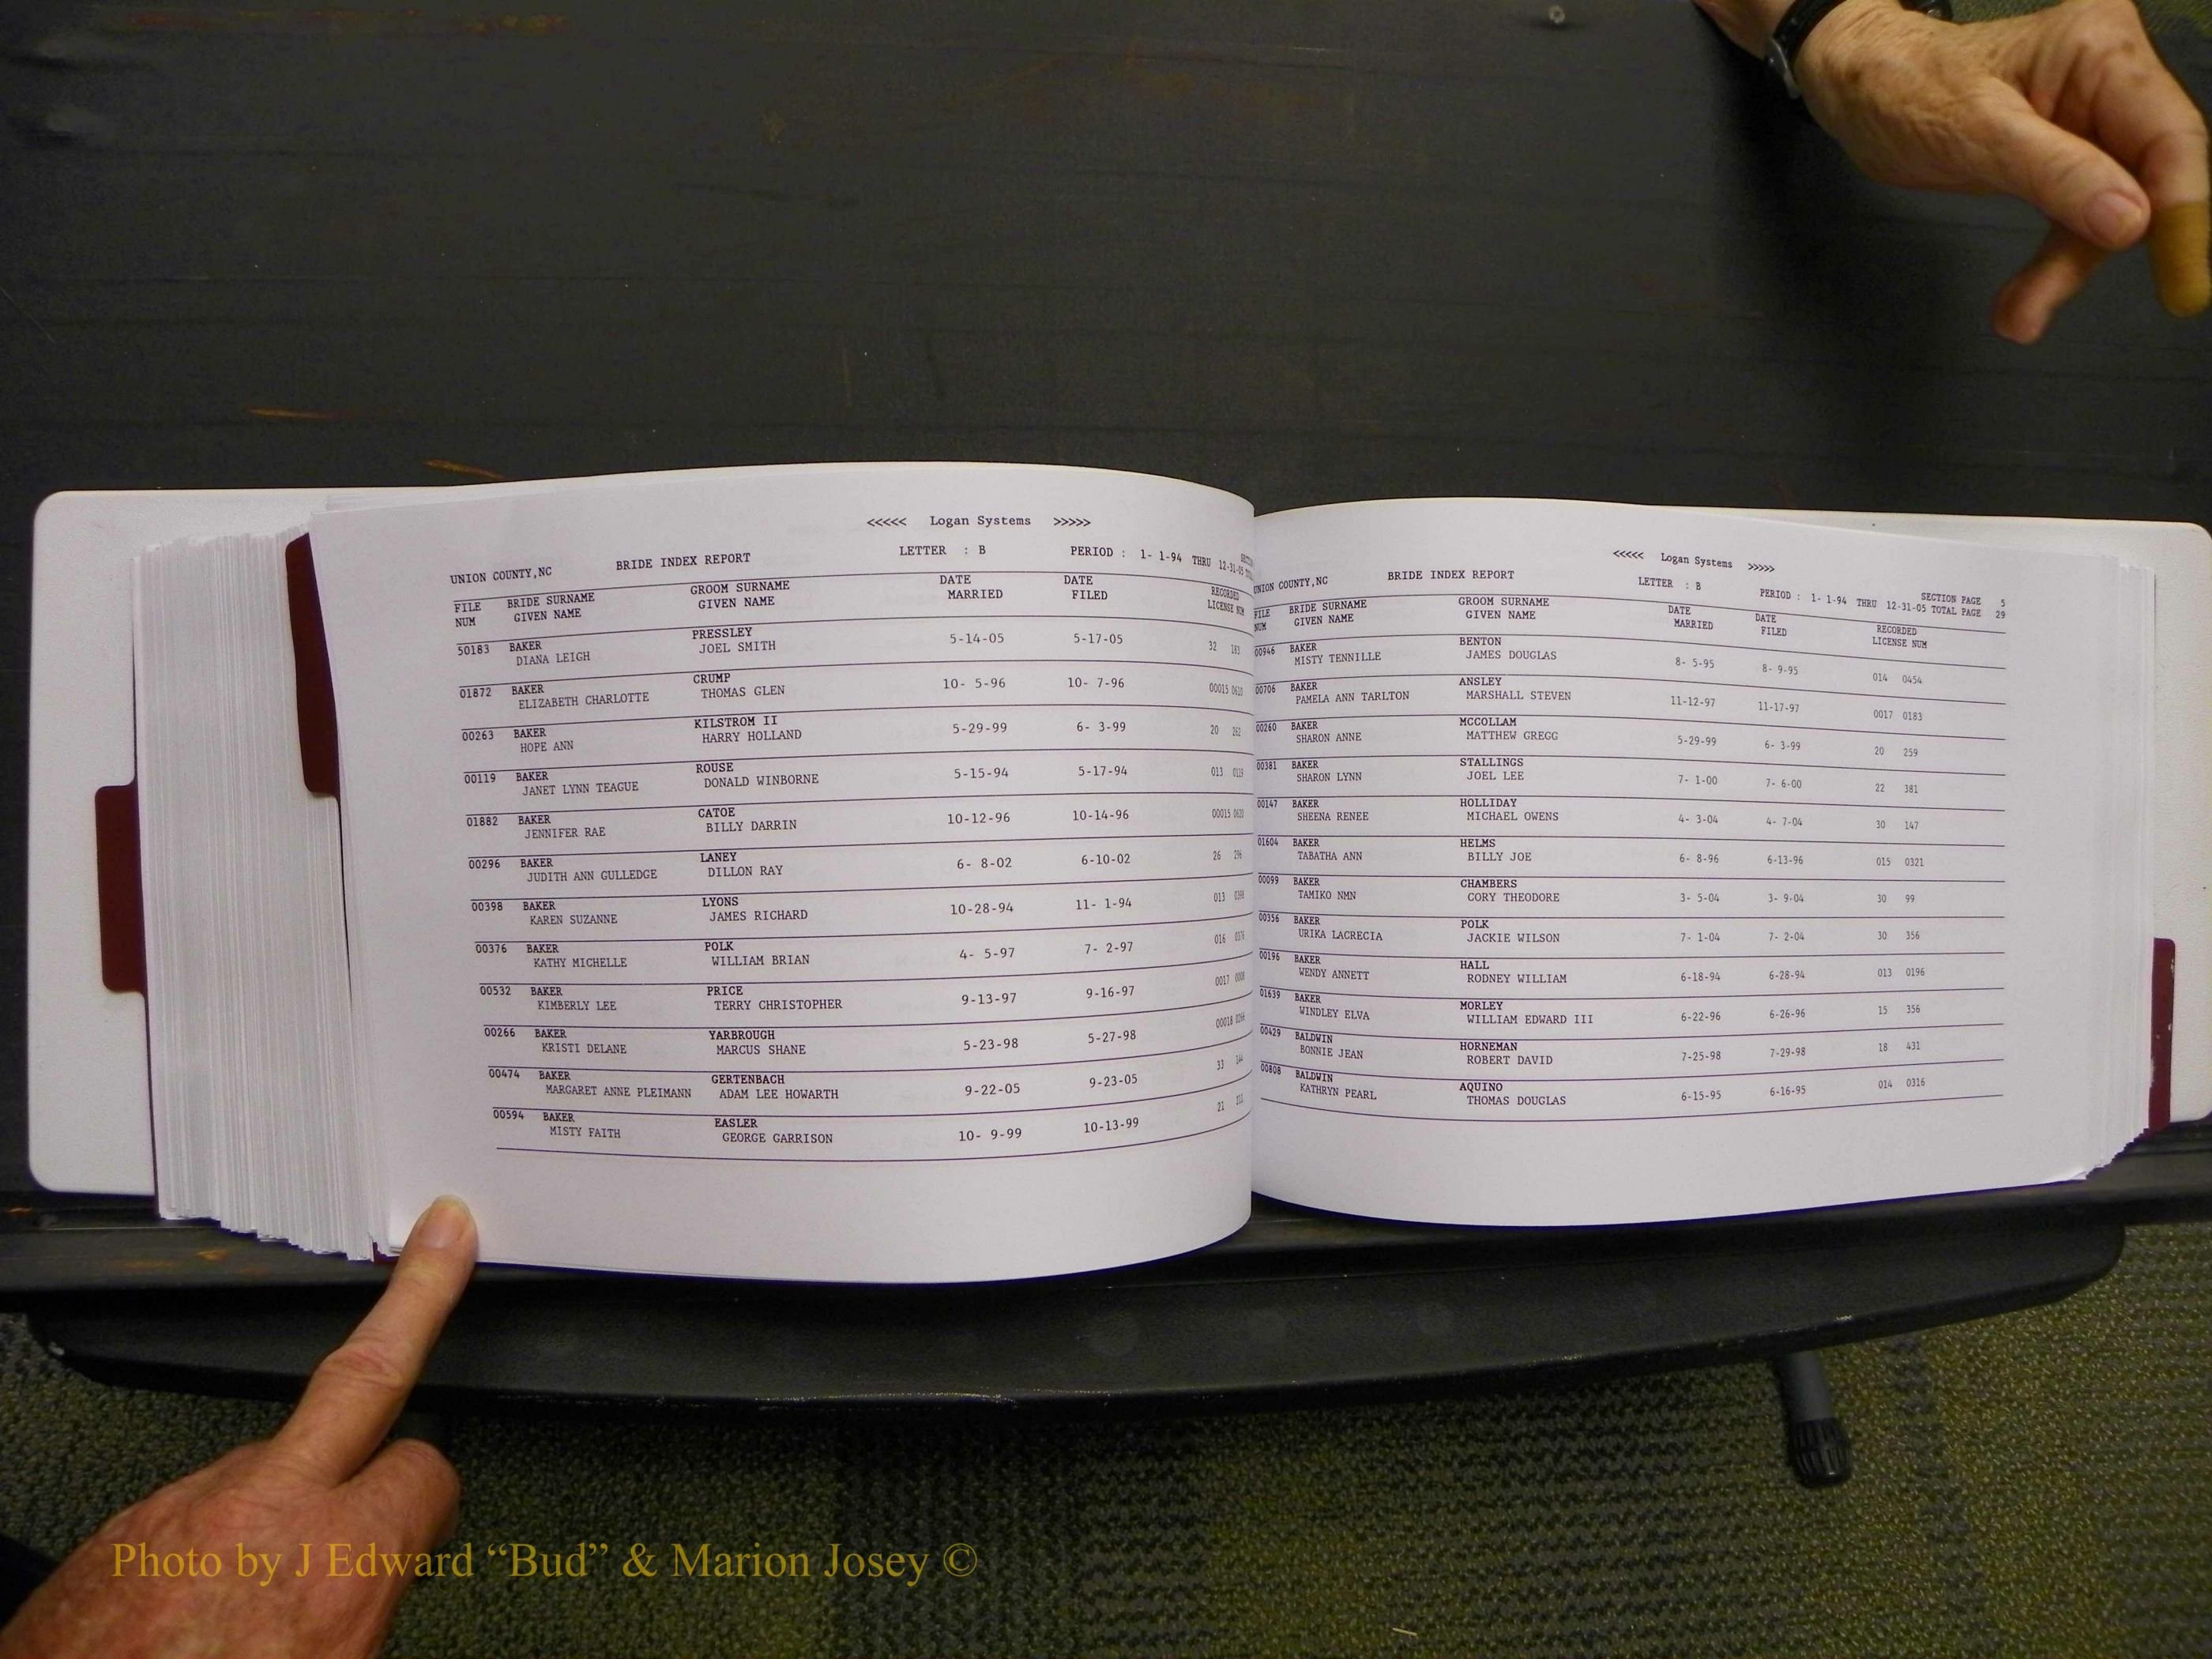 <<<<< Logan Systems >>>>>
UNION COUNTY,NC BRIDE INDEX REPORT LETTER : B PERIOD : 1- 1-94 THRU 12-31-05
FILE BRIDE SURNAME GROOM SURNAME DATE DATE RECORDED
NUM GIVEN NAME GIVEN NAME MARRIED FILED LICENSE NUM
50183 BAKER PRESSLEY 5-14-05 5-17-05 32 183
DIANA LEIGH JOEL SMITH
01872 BAKER CRUMP 10- 5-96 10- 7-96 00015
ELIZABETH CHARLOTTE THOMAS GLEN
00263 BAKER KILSTROM II 5-29-99 6- 3-99 20 262
HOPE ANN HARRY HOLLAND
00119 BAKER ROUSE 5-15-94 5-17-94 013 0119
JANET LYNN TEAGUE DONALD WINBORNE
01882 BAKER CATOE 10-12-96 10-14-96 00015
JENNIFER RAE BILLY DARRIN
00296 BAKER LANEY 6- 8-02 6-10-02 26 296
JUDITH ANN GULLEDGE DILLON RAY
00398 BAKER LYONS 10-28-94 11- 1-94 013 0398
KAREN SUZANNE JAMES RICHARD
00376 BAKER POLK 4- 5-97 7- 2-97 016
KATHY MICHELLE WILLIAM BRIAN
00532 BAKER PRICE 9-13-97 9-16-97 0017
KIMBERLY LEE TERRY CHRISTOPHER
00266 BAKER YARBROUGH 5-23-98 5-27-98 00018
KRISTI DELANE MARCUS SHANE
00474 BAKER GERTENBACH 9-22-05 9-23-05 33
MARGARET ANNE PLEIMANN ADAM LEE HOWARTH
00594 BAKER EASLER 10- 9-99 10-13-99 21
MISTY FAITH GEORGE GARRISON
<<<<< Logan Systems >>>>>
UNION COUNTY,NC BRIDE INDEX REPORT LETTER : B SECTION PAGE 5
PERIOD : 1- 1-94 THRU 12-31-05 TOTAL PAGE 29
FILE BRIDE SURNAME GROOM SURNAME DATE DATE RECORDED
NUM GIVEN NAME GIVEN NAME MARRIED FILED LICENSE NUM
00946 BAKER BENTON 8- 5-95 8- 9-95 014 0454
MISTY TENNILLE JAMES DOUGLAS
00706 BAKER ANSLEY 11-12-97 11-17-97 0017 0183
PAMELA ANN TARLTON MARSHALL STEVEN
00260 BAKER MCCOLLAM 5-29-99 6- 3-99 20 259
SHARON ANNE MATTHEW GREGG
00381 BAKER STALLINGS 7- 1-00 7- 6-00 22 381
SHARON LYNN JOEL LEE
00147 BAKER HOLLIDAY 4- 3-04 4- 7-04 30 147
SHEENA RENEE MICHAEL OWENS
01604 BAKER HELMS 6- 8-96 6-13-96 015 0321
TABATHA ANN BILLY JOE
00099 BAKER CHAMBERS 3- 5-04 3- 9-04 30 99
TAMIKO NMN CORY THEODORE
00356 BAKER POLK 7- 1-04 7- 2-04 30 356
URIKA LACRECIA JACKIE WILSON
00196 BAKER HALL 6-18-94 6-28-94 013 0196
WENDY ANNETT RODNEY WILLIAM
01639 BAKER MORLEY 6-22-96 6-26-96 15 356
WINDLEY ELVA WILLIAM EDWARD III
00429 BALDWIN HORNEMAN 7-25-98 7-29-98 18 431
BONNIE JEAN ROBERT DAVID
00808 BALDWIN AQUINO 6-15-95 6-16-95 014 0316
KATHRYN PEARL THOMAS DOUGLAS
Photo by J Edward “Bud” & Marion Josey ©